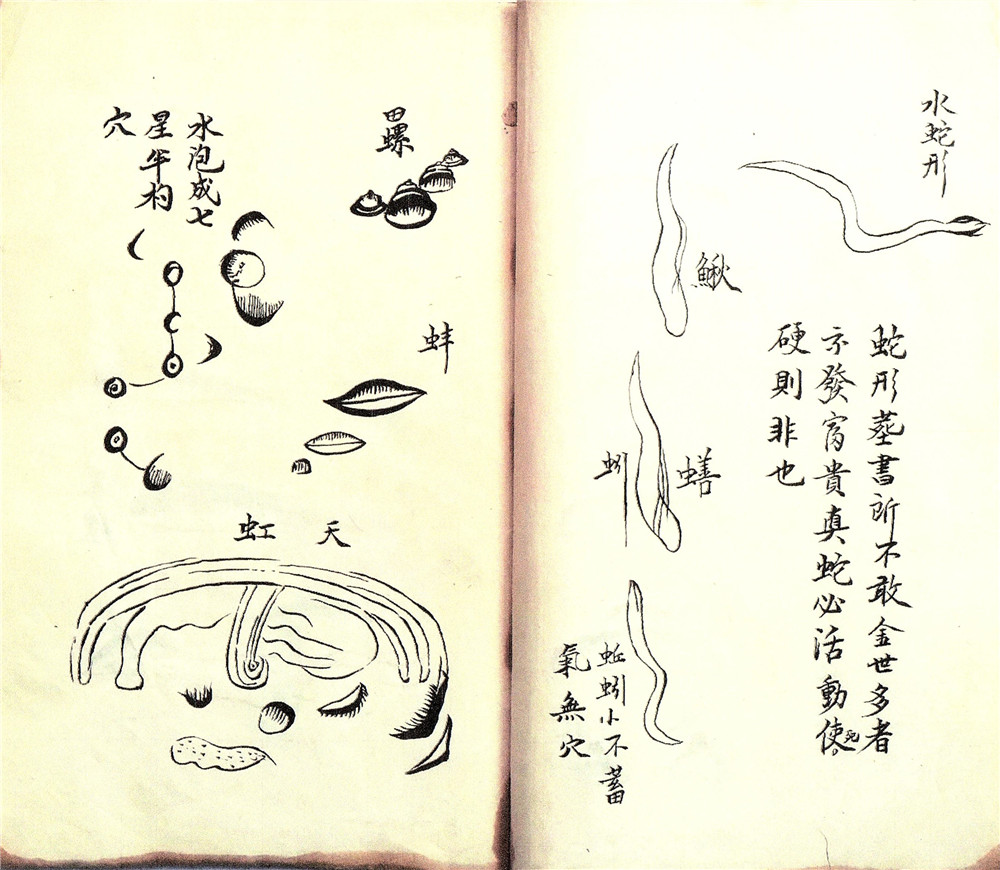 水蛇形
蛇形塟書所不敢金世多者
示發富貴真蛇必活動使死
硬則非也
鰍
蟮
蚓
蚯蚓小不蓄
氣無穴
田螺
蚌
水泡成七
星半杓
穴
天虹